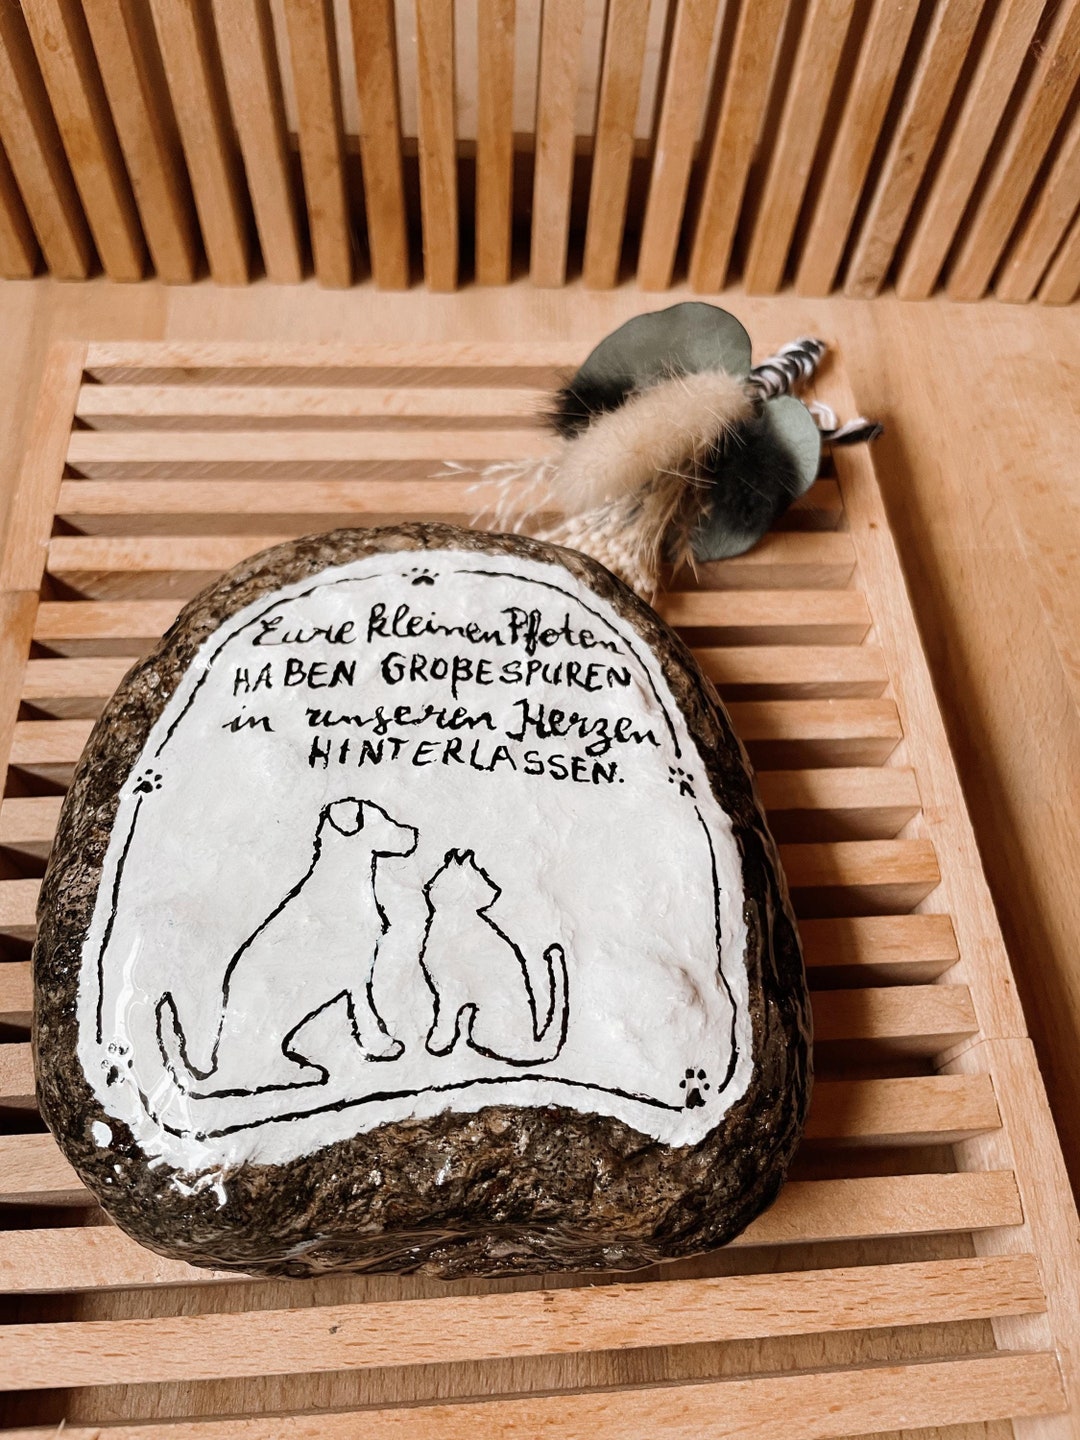 Eure kleinen Pfoten
HABEN GROßE SPUREN
in unseren Herzen
HINTERLASSEN.